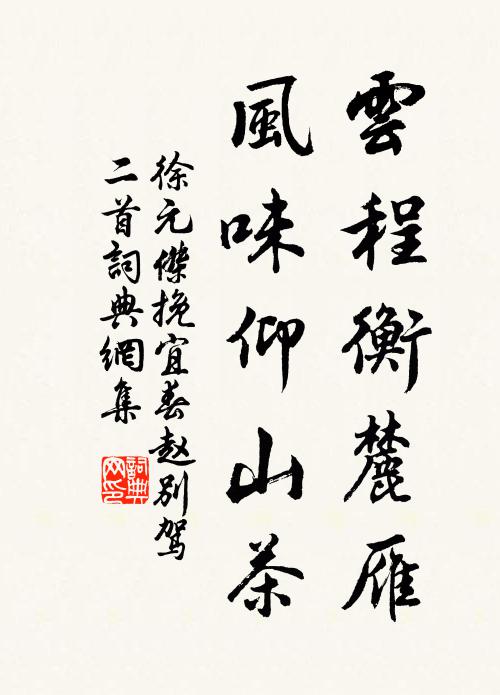 雲程衡麓雁
風味仰山茶
徐元傑挽宜春赵别駕
二首詞典網集
詞典网印